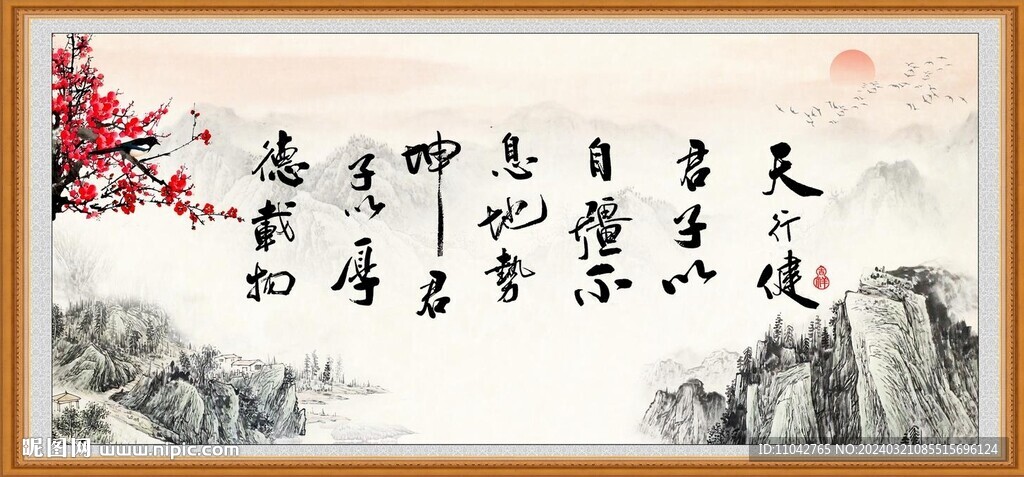 天行健
君子以
自彊不
息地勢
坤君
子以厚
德載物
昵图网 www.nipic.com
ID:11042765 NO:20240321085515696124